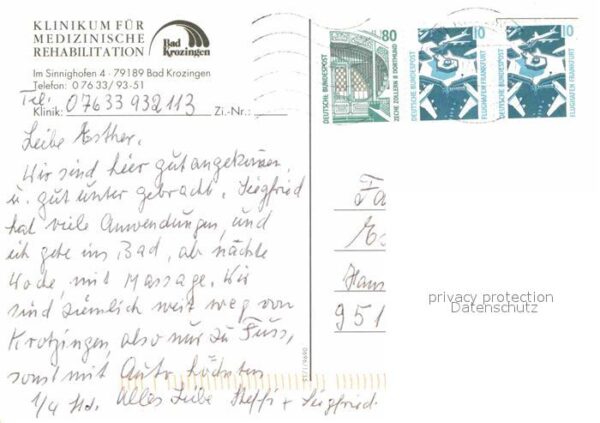 KLINIKUM FÜR
MEDIZINISCHE
REHABILITATION
Bad
Krozingen
Im Sinnighofen 4 · 79189 Bad Krozingen
Telefon: 0 76 33 / 93-51
Tel:
Klinik: 07633 932113 Zi.-Nr.:
Liebe Esther,
Wir sind hier gut angekommen
u. gut unter gebracht. Siegfried
hat viele Anwendungen, und
ich gehe ins Bad, ab nächste
Woche, mit Massage. Wir
sind ziemlich weit weg von
Krotzingen, also nur zu Fuss,
sonst mit Auto höchsten
1/4 Std. Alles Liebe Steffi + Siegfried
80
DEUTSCHE BUNDESPOST
ZECHE ZOLLERN II DORTMUND
10
DEUTSCHE BUNDESPOST
FLUGHAFEN FRANKFURT
10
DEUTSCHE BUNDESPOST
FLUGHAFEN FRANKFURT
Fa
Es
Haus
951
privacy protection
Datenschutz